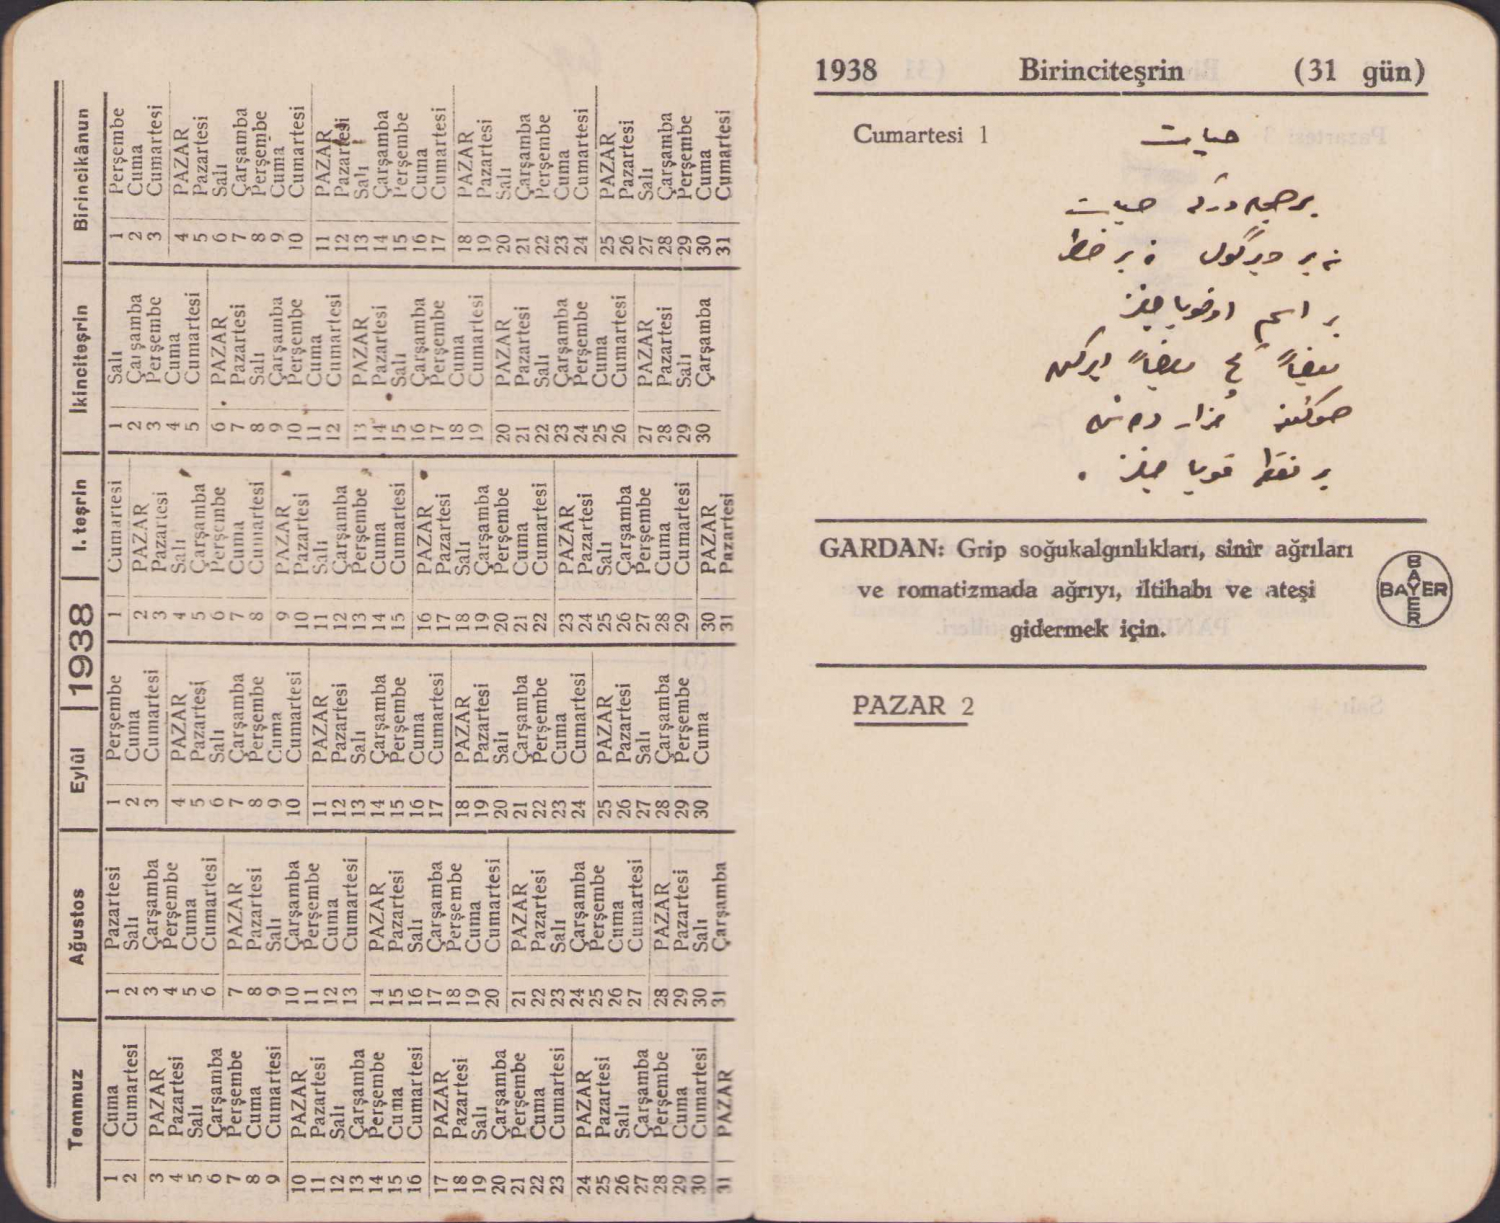 Temmuz
1 Cuma
2 Cumartesi
3 PAZAR
4 Pazartesi
5 Salı
6 Çarşamba
7 Perşembe
8 Cuma
9 Cumartesi
10 PAZAR
11 Pazartesi
12 Salı
13 Çarşamba
14 Perşembe
15 Cuma
16 Cumartesi
17 PAZAR
18 Pazartesi
19 Salı
20 Çarşamba
21 Perşembe
22 Cuma
23 Cumartesi
24 PAZAR
25 Pazartesi
26 Salı
27 Çarşamba
28 Perşembe
29 Cuma
30 Cumartesi
31 PAZAR
Ağustos
1 Pazartesi
2 Salı
3 Çarşamba
4 Perşembe
5 Cuma
6 Cumartesi
7 PAZAR
8 Pazartesi
9 Salı
10 Çarşamba
11 Perşembe
12 Cuma
13 Cumartesi
14 PAZAR
15 Pazartesi
16 Salı
17 Çarşamba
18 Perşembe
19 Cuma
20 Cumartesi
21 PAZAR
22 Pazartesi
23 Salı
24 Çarşamba
25 Perşembe
26 Cuma
27 Cumartesi
28 PAZAR
29 Pazartesi
30 Salı
31 Çarşamba
Eylûl
1 Perşembe
2 Cuma
3 Cumartesi
4 PAZAR
5 Pazartesi
6 Salı
7 Çarşamba
8 Perşembe
9 Cuma
10 Cumartesi
11 PAZAR
12 Pazartesi
13 Salı
14 Çarşamba
15 Perşembe
16 Cuma
17 Cumartesi
18 PAZAR
19 Pazartesi
20 Salı
21 Çarşamba
22 Perşembe
23 Cuma
24 Cumartesi
25 PAZAR
26 Pazartesi
27 Salı
28 Çarşamba
29 Perşembe
30 Cuma
1938
I. teşrin
1 Cumartesi
2 PAZAR
3 Pazartesi
4 Salı
5 Çarşamba
6 Perşembe
7 Cuma
8 Cumartesi
9 PAZAR
10 Pazartesi
11 Salı
12 Çarşamba
13 Perşembe
14 Cuma
15 Cumartesi
16 PAZAR
17 Pazartesi
18 Salı
19 Çarşamba
20 Perşembe
21 Cuma
22 Cumartesi
23 PAZAR
24 Pazartesi
25 Salı
26 Çarşamba
27 Perşembe
28 Cuma
29 Cumartesi
30 PAZAR
31 Pazartesi
İkinciteşrin
1 Salı
2 Çarşamba
3 Perşembe
4 Cuma
5 Cumartesi
6 PAZAR
7 Pazartesi
8 Salı
9 Çarşamba
10 Perşembe
11 Cuma
12 Cumartesi
13 PAZAR
14 Pazartesi
15 Salı
16 Çarşamba
17 Perşembe
18 Cuma
19 Cumartesi
20 PAZAR
21 Pazartesi
22 Salı
23 Çarşamba
24 Perşembe
25 Cuma
26 Cumartesi
27 PAZAR
28 Pazartesi
29 Salı
30 Çarşamba
Birincikânun
1 Perşembe
2 Cuma
3 Cumartesi
4 PAZAR
5 Pazartesi
6 Salı
7 Çarşamba
8 Perşembe
9 Cuma
10 Cumartesi
11 PAZAR
12 Pazartesi
13 Salı
14 Çarşamba
15 Perşembe
16 Cuma
17 Cumartesi
18 PAZAR
19 Pazartesi
20 Salı
21 Çarşamba
22 Perşembe
23 Cuma
24 Cumartesi
25 PAZAR
26 Pazartesi
27 Salı
28 Çarşamba
29 Perşembe
30 Cuma
31 Cumartesi
1938 Birinciteşrin (31 gün)
Cumartesi 1
حیات
حیات
نه بر ویرگول نه بر خط
بر اسم
بعضاً بعضاً
مزار
بر نقطه
GARDAN: Grip soğukalgınlıkları, sinir ağrıları
ve romatizmada ağrıyı, iltihabı ve ateşi
gidermek için.
BAYER
BAYER
PAZAR 2